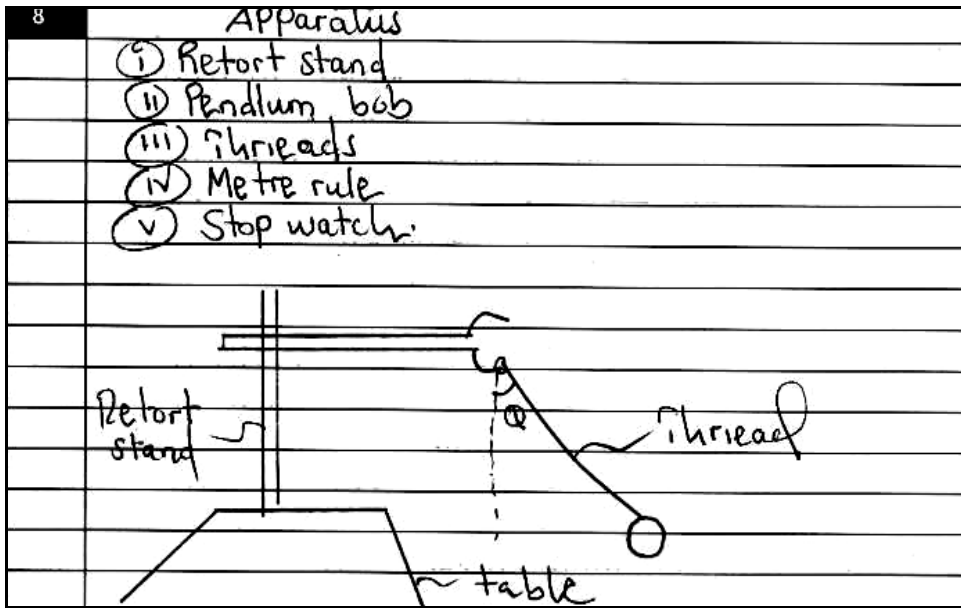 8
Apparatus
(i) Retort stand
(ii) Pendlum bob
(iii) Thrieads
(iv) Metre rule
(v) Stop watch.
Retort
stand
Q
Thriead
table